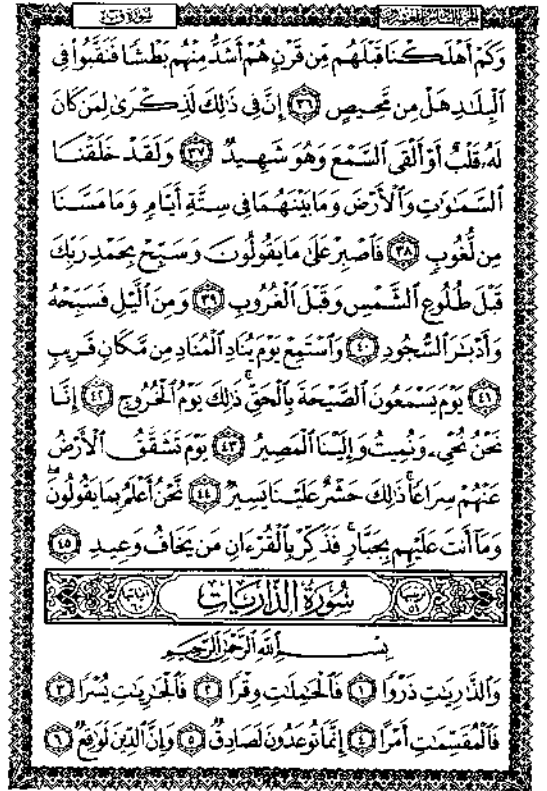 الجزء السادس والعشرون
سورة ق
وَكَمْ أَهْلَكْنَا قَبْلَهُم مِّن قَرْنٍ هُمْ أَشَدُّ مِنْهُم بَطْشًا فَنَقَّبُوا۟ فِى
ٱلْبِلَٰدِ هَلْ مِن مَّحِيصٍ ٣٦ إِنَّ فِى ذَٰلِكَ لَذِكْرَىٰ لِمَن كَانَ
لَهُۥ قَلْبٌ أَوْ أَلْقَى ٱلسَّمْعَ وَهُوَ شَهِيدٌ ٣٧ وَلَقَدْ خَلَقْنَا
ٱلسَّمَٰوَٰتِ وَٱلْأَرْضَ وَمَا بَيْنَهُمَا فِى سِتَّةِ أَيَّامٍ وَمَا مَسَّنَا
مِن لُّغُوبٍ ٣٨ فَٱصْبِرْ عَلَىٰ مَا يَقُولُونَ وَسَبِّحْ بِحَمْدِ رَبِّكَ
قَبْلَ طُلُوعِ ٱلشَّمْسِ وَقَبْلَ ٱلْغُرُوبِ ٣٩ وَمِنَ ٱلَّيْلِ فَسَبِّحْهُ
وَأَدْبَٰرَ ٱلسُّجُودِ ٤٠ وَٱسْتَمِعْ يَوْمَ يُنَادِ ٱلْمُنَادِ مِن مَّكَانٍ قَرِيبٍ
٤١ يَوْمَ يَسْمَعُونَ ٱلصَّيْحَةَ بِٱلْحَقِّ ۚ ذَٰلِكَ يَوْمُ ٱلْخُرُوجِ ٤٢ إِنَّا
نَحْنُ نُحْىِۦ وَنُمِيتُ وَإِلَيْنَا ٱلْمَصِيرُ ٤٣ يَوْمَ تَشَقَّقُ ٱلْأَرْضُ
عَنْهُمْ سِرَاعًا ۚ ذَٰلِكَ حَشْرٌ عَلَيْنَا يَسِيرٌ ٤٤ نَّحْنُ أَعْلَمُ بِمَا يَقُولُونَ ۖ
وَمَآ أَنتَ عَلَيْهِم بِجَبَّارٍ ۖ فَذَكِّرْ بِٱلْقُرْءَانِ مَن يَخَافُ وَعِيدِ ٤٥
ترتيبها ٥١ سُورَةُ الذَّارِيَاتِ آياتها ٦٠
بِسْمِ ٱللَّهِ ٱلرَّحْمَٰنِ ٱلرَّحِيمِ
وَٱلذَّٰرِيَٰتِ ذَرْوًا ١ فَٱلْحَٰمِلَٰتِ وِقْرًا ٢ فَٱلْجَٰرِيَٰتِ يُسْرًا ٣
فَٱلْمُقَسِّمَٰتِ أَمْرًا ٤ إِنَّمَا تُوعَدُونَ لَصَادِقٌ ٥ وَإِنَّ ٱلدِّينَ لَوَٰقِعٌ ٦